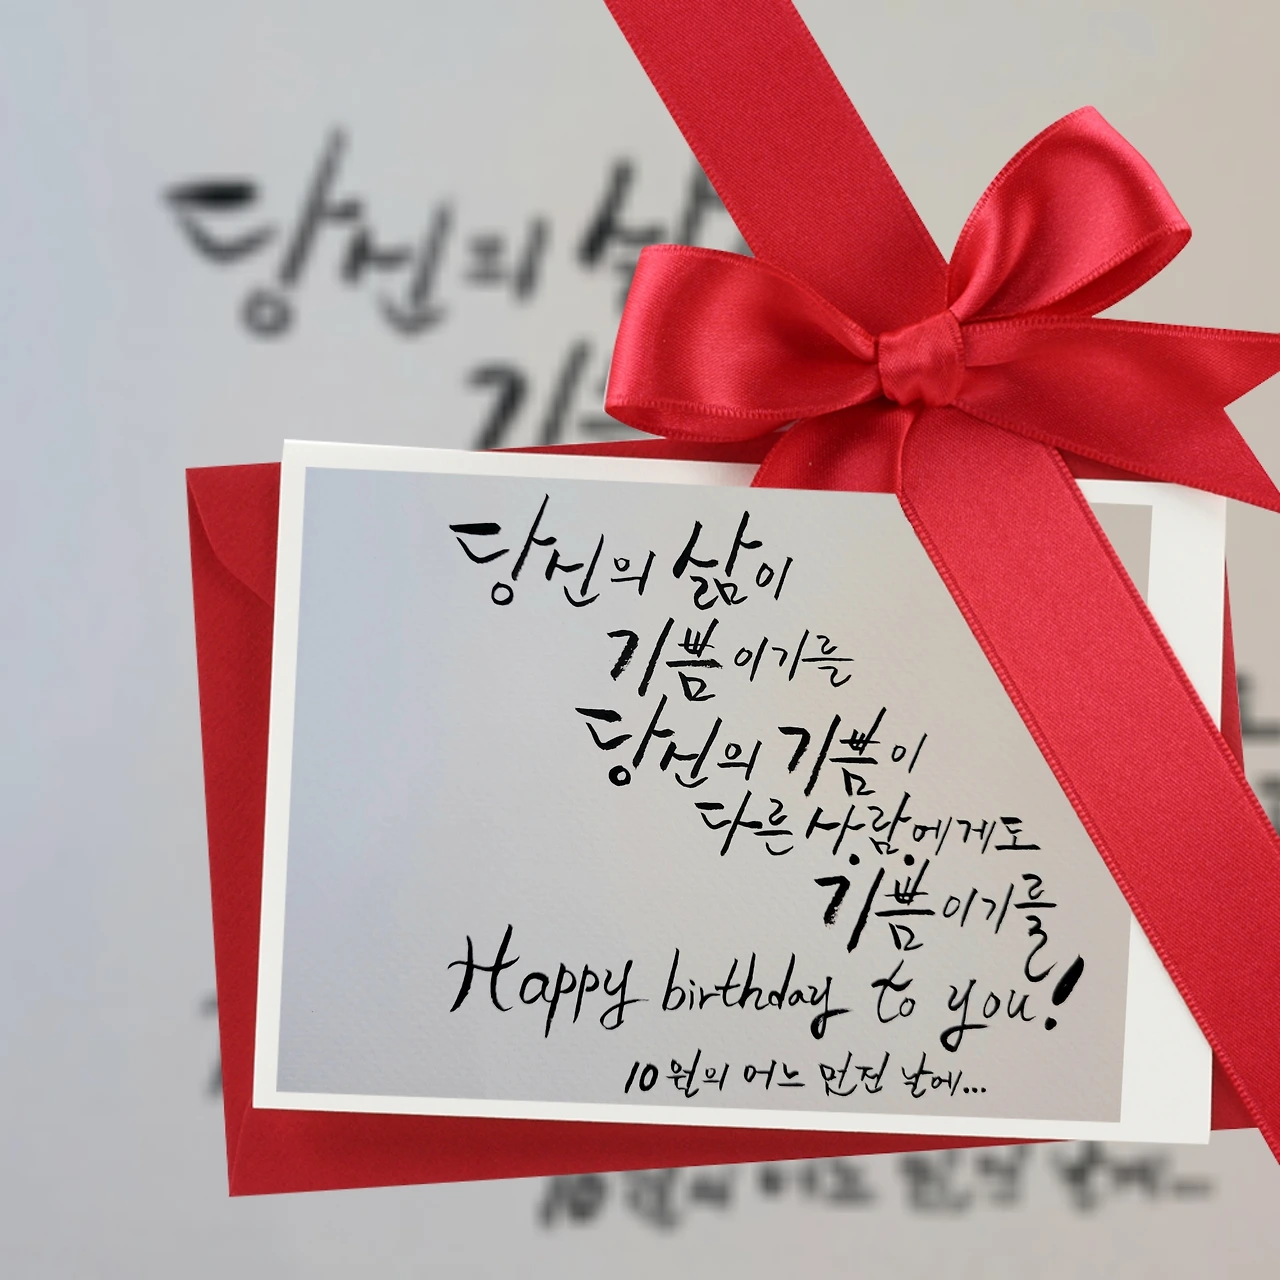 당신의 삶이
기쁨이기를
당신의 기쁨이
다른 사람에게도
기쁨이기를
Happy birthday to you!
10월의 어느 멋진 날에...